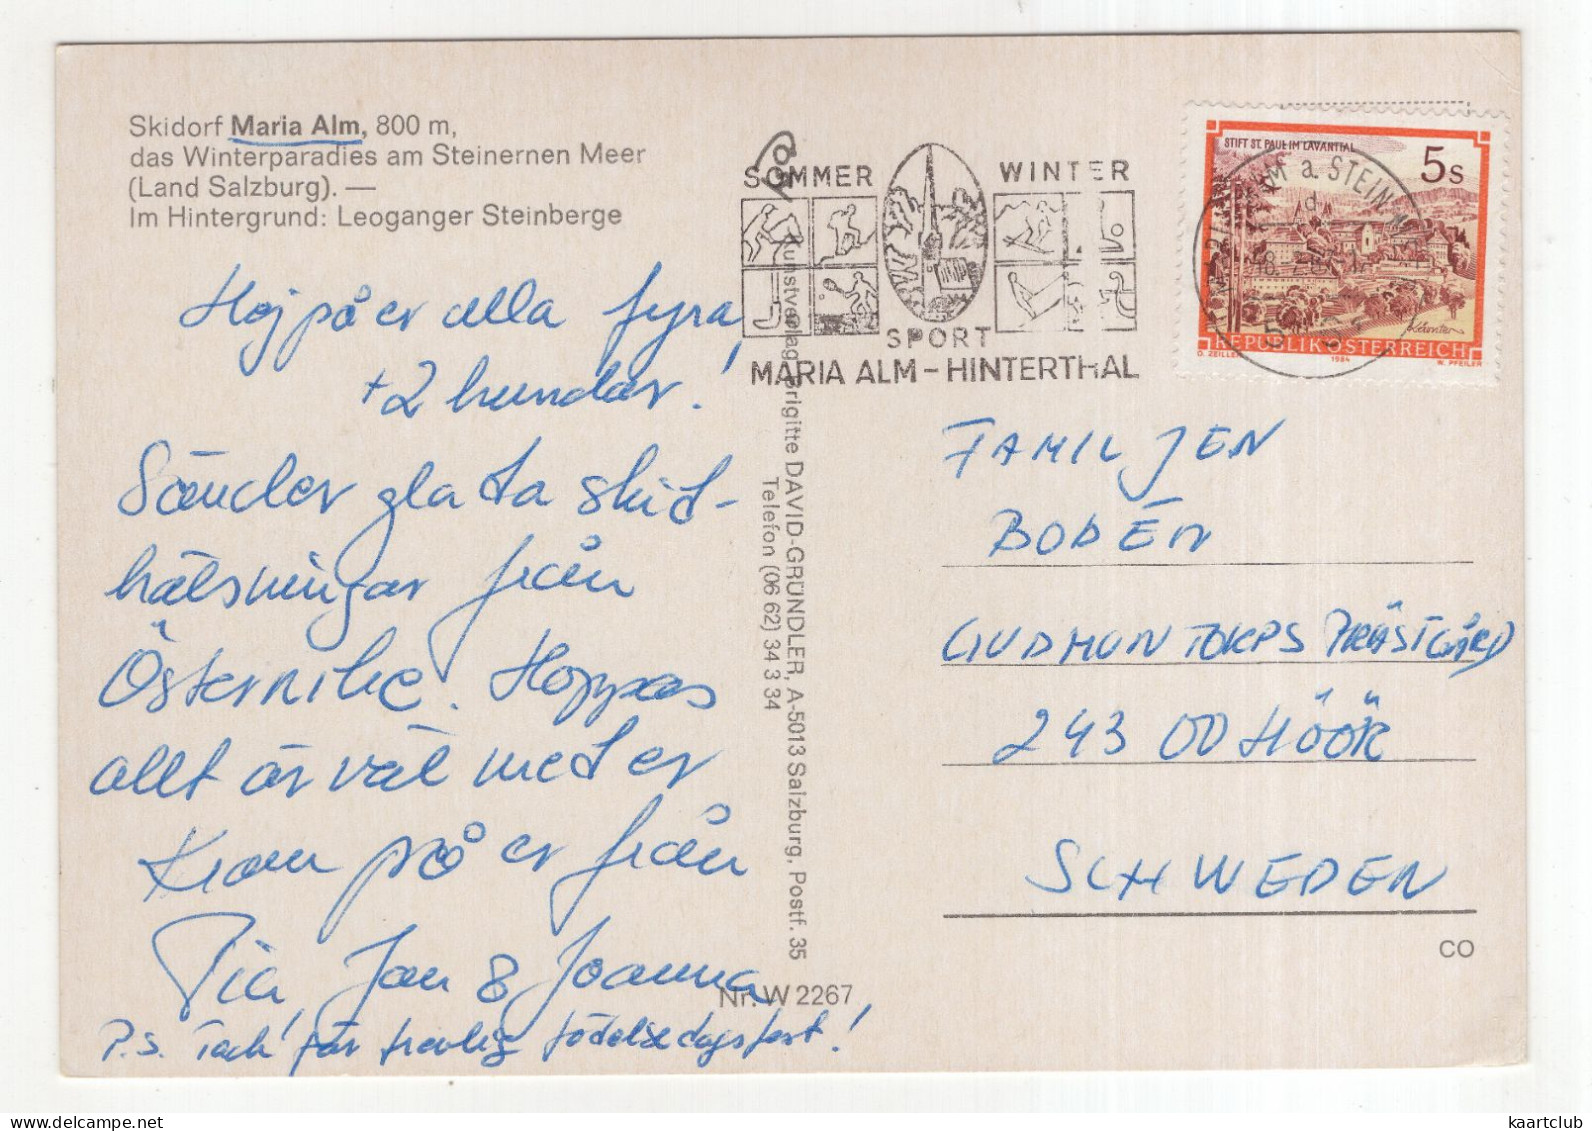 Skidorf Maria Alm, 800 m,
das Winterparadies am Steinernen Meer
(Land Salzburg). —
Im Hintergrund: Leoganger Steinberge
Hej på er alla fyra
+2 hundar!
Sänder glada skid-
hälsningar från
Österrike. Hoppas
allt är väl med er
Kram på er från
Pia, Jan & Joanna
P.S. Tack! för trevlig födelsedagsfest!
Kunstverlag Brigitte DAVID-GRÜNDLER, A-5013 Salzburg, Postf. 35
Telefon (06 62) 34 3 34
Nr. W 2267
SOMMER WINTER
SPORT
MARIA ALM - HINTERTHAL
STIFT ST. PAUL IM LAVANTTAL
5 S
Kärnten
REPUBLIK ÖSTERREICH
O. ZEILLER 1984 W. PFEILER
ALM a. STEIN
FAMILJEN
BODÉN
GUDMUNTORPS PRÄSTGÅRD
243 00 HÖÖR
SCHWEDEN
CO
kaartclub